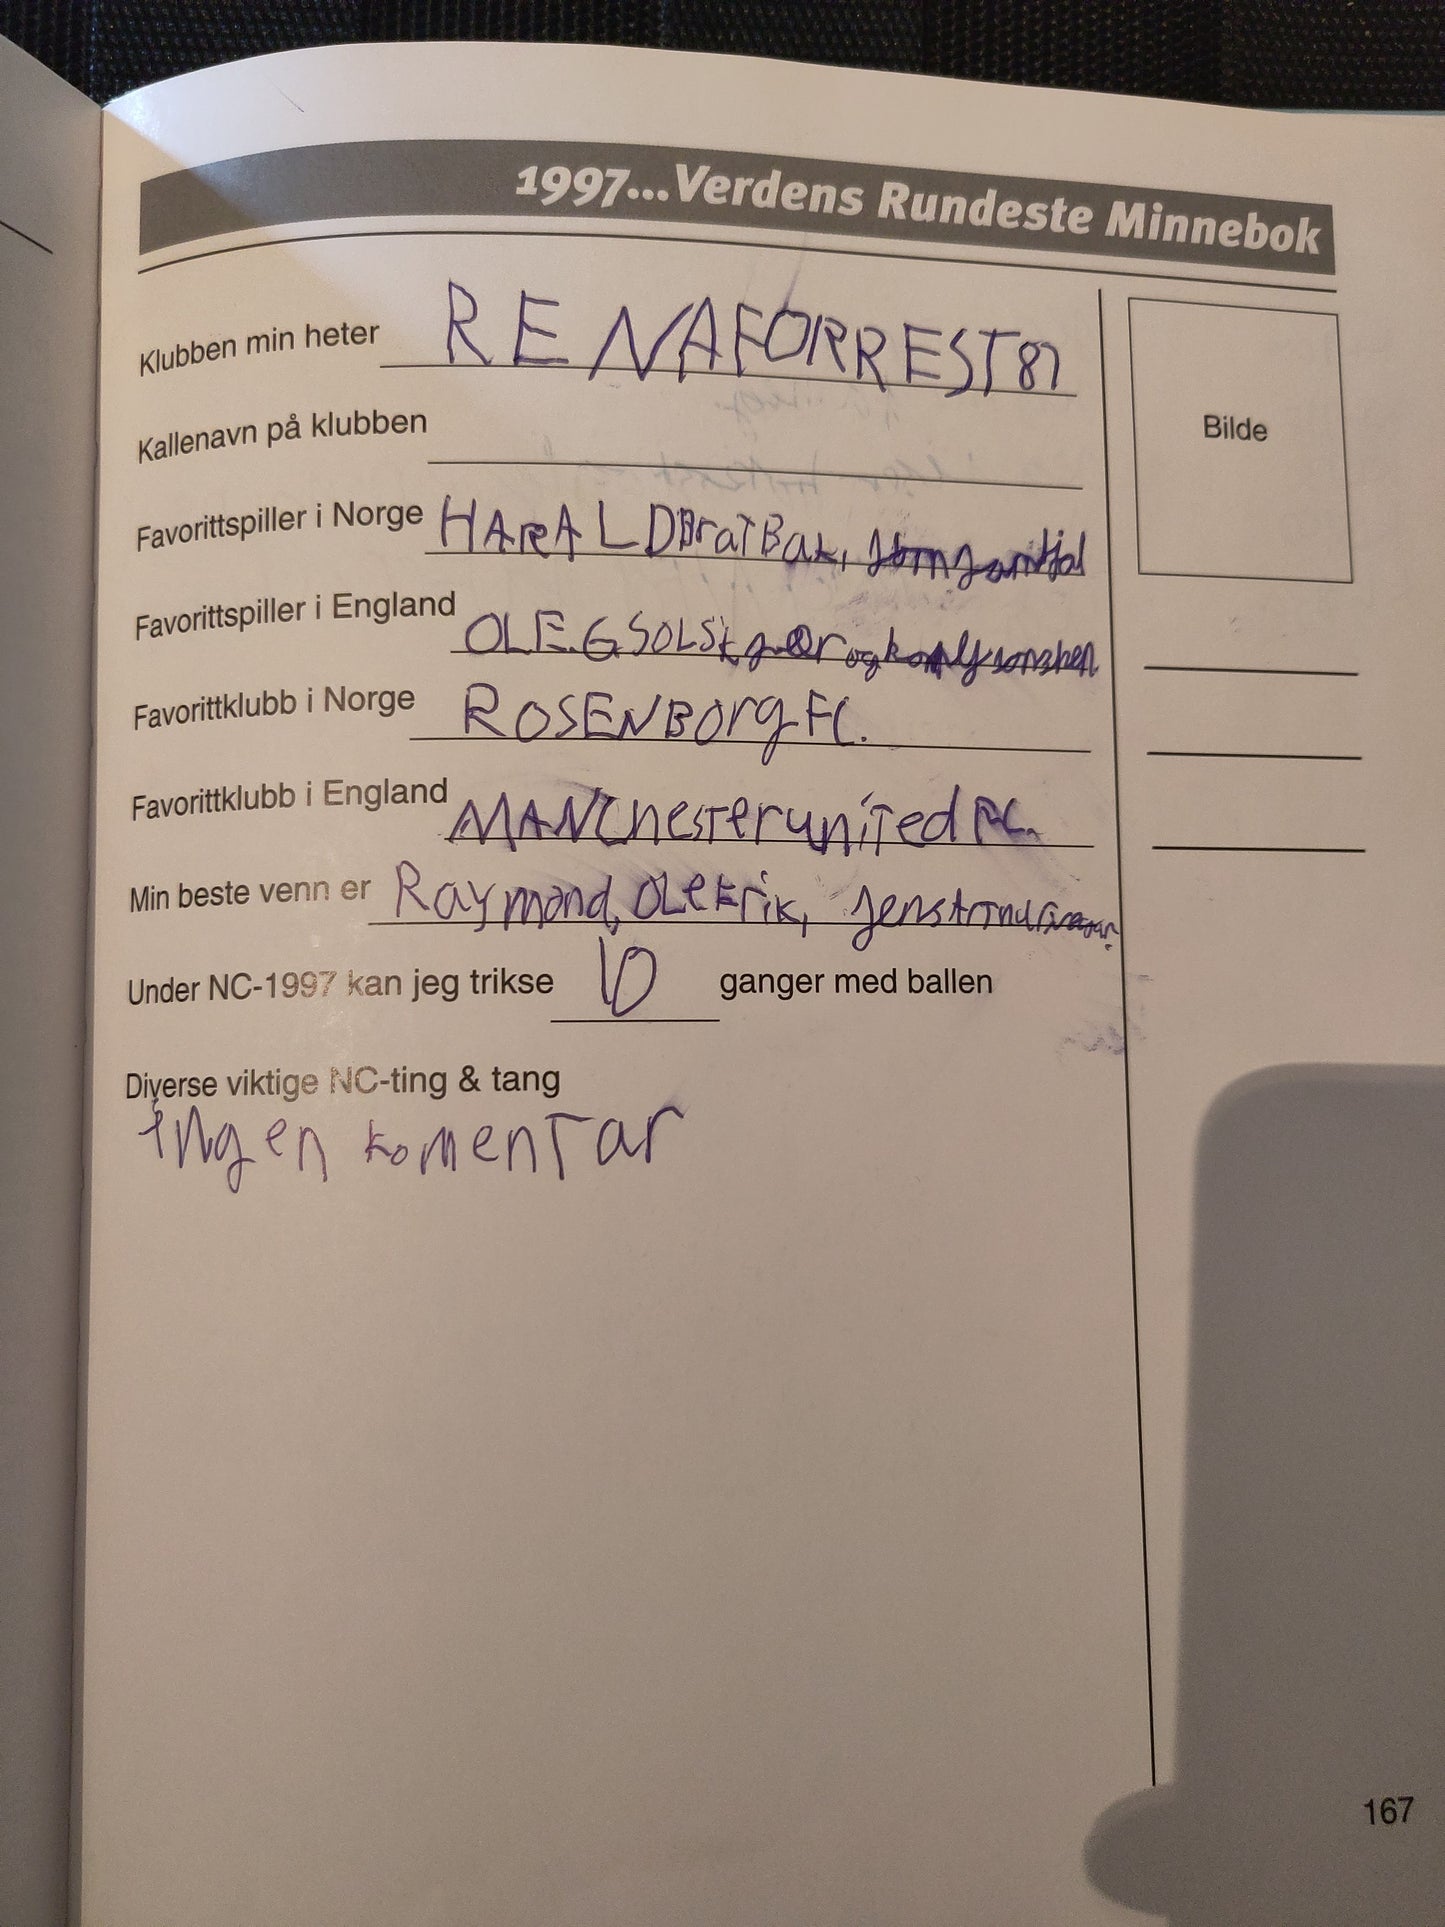 1997...Verdens Rundeste Minnebok
Klubben min heter RENAFORREST87
Bilde
Kallenavn på klubben
Favorittspiller i Norge HARALDBraTBak,
Favorittspiller i England OLE.GSOLSkjær og
Favorittklubb i Norge ROSENBOrg FC.
Favorittklubb i England MANChesterunited FC.
Min beste venn er Raymond, OLeErik, Jens
Under NC-1997 kan jeg trikse 10 ganger med ballen
Diverse viktige NC-ting & tang
ingen komentar
167